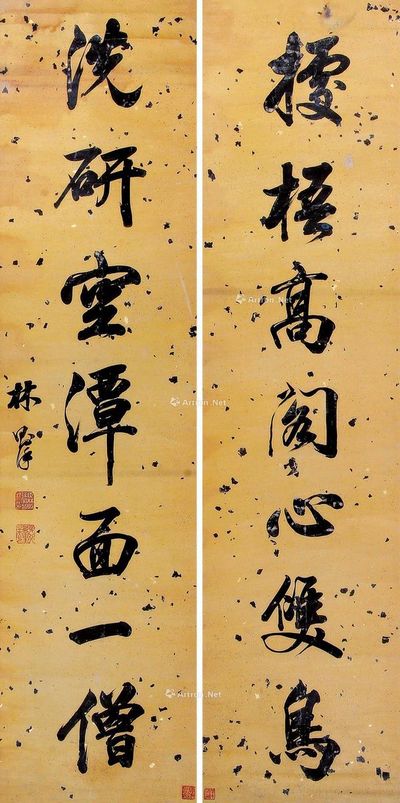 据梧高阁心双鸟
洗研空潭面一僧
林则徐
Artron.Net
Artron.Net
Artron.Net